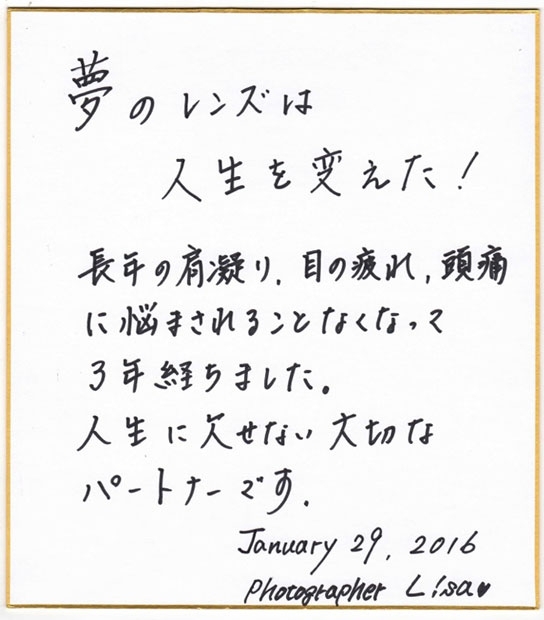 夢のレンズは
人生を変えた!
長年の肩凝り,目の疲れ,頭痛
に悩まされることなくなって
3年経ちました。
人生に欠せない大切な
パートナーです.
January 29, 2016
Photographer Lisa♥